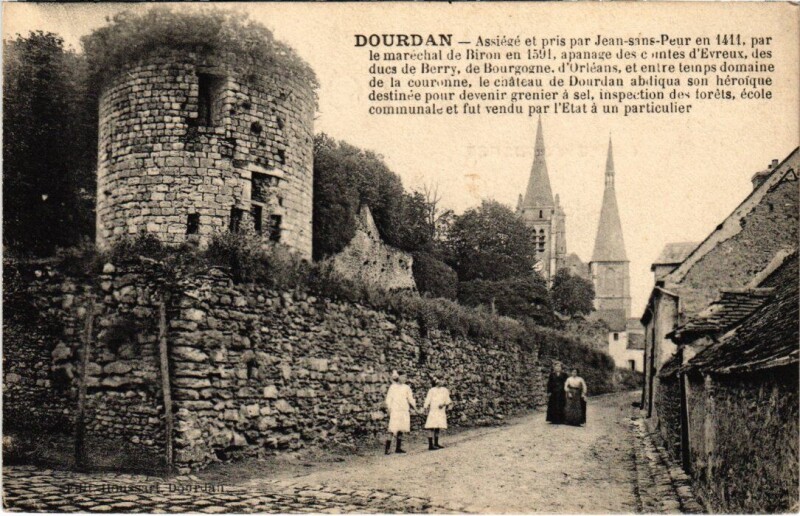 DOURDAN — Assiégé et pris par Jean-sans-Peur en 1411, par
le maréchal de Biron en 1591, apanage des comtes d'Evreux, des
ducs de Berry, de Bourgogne, d'Orléans, et entre temps domaine
de la couronne, le château de Dourdan abdiqua son héroïque
destinée pour devenir grenier à sel, inspection des forêts, école
communale et fut vendu par l'Etat à un particulier
Dourdan